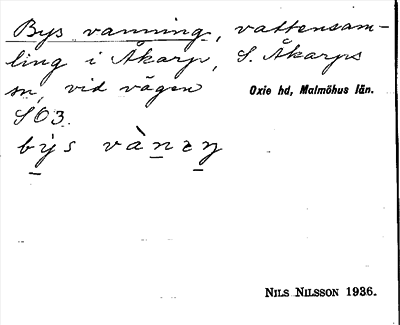 Bys vanning, vattensam-
ling i Åkarp, S. Åkarps
sn, vid vägen
Oxie hd, Malmöhus län.
SO3.
NILS NILSSON 1936.